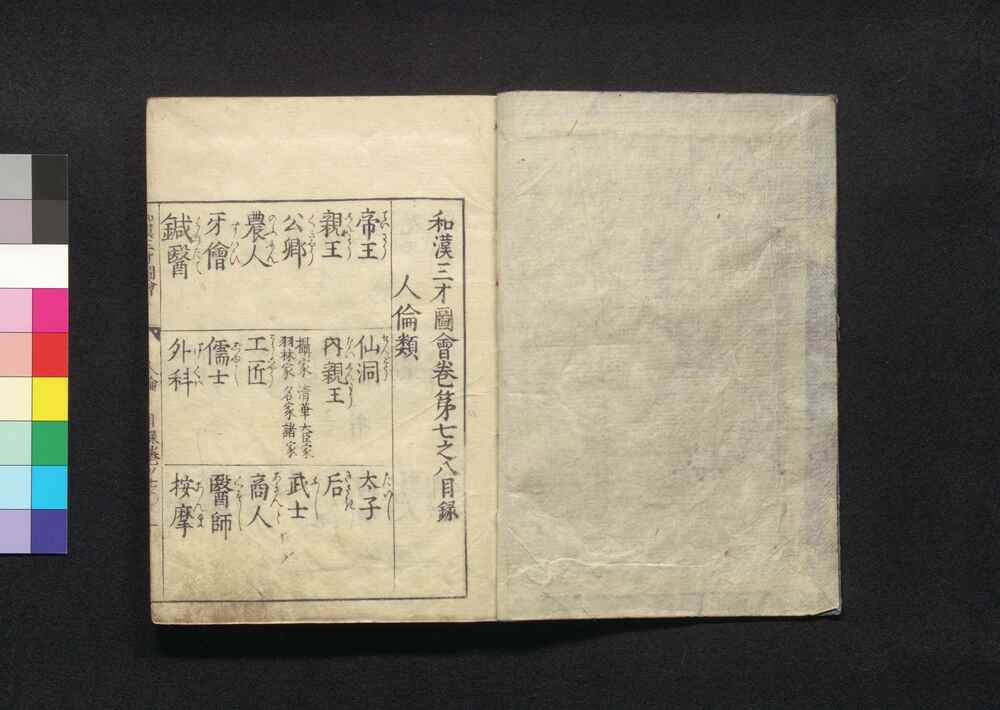 和漢三才圖會卷第七之八目録
人倫類
帝王
仙洞
太子
親王
内親王
后
公卿
攝家 清華 大臣家
羽林家 名家 諸家
武士
農人
工匠
商人
牙儈
儒士
醫師
鍼醫
外科
按摩